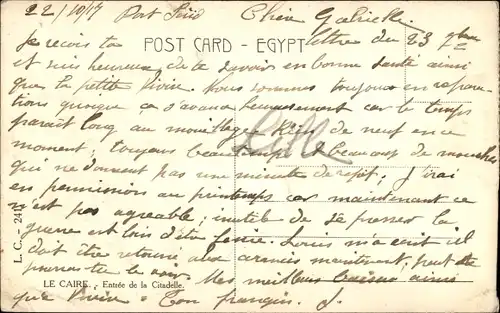 22/10/17 Port Saïd Chère Gabrielle
POST CARD - EGYPT
Je reçois ta lettre du 23 7bre
et suis heureux de te savoir en bonne santé ainsi
que la petite Vivie. Nous sommes toujours en répara-
tions quoique ça s'avance heureusement car le temps
paraît long au mouillage. Rien de neuf en ce
moment; toujours beau temps beaucoup de mouches
qui ne donnent pas une minute de répit; J'irai
en permission au printemps car maintenant ce
n'est pas agréable; inutile de se presser la
guerre est loin d'être finie. Louis m'a écrit il
doit être retourné aux armées maintenant; peut-être
pourras-tu le voir. Mes meilleurs baisers ainsi
que Vivie. Ton frangin. J.
L. C. 241
LE CAIRE. - Entrée de la Citadelle.